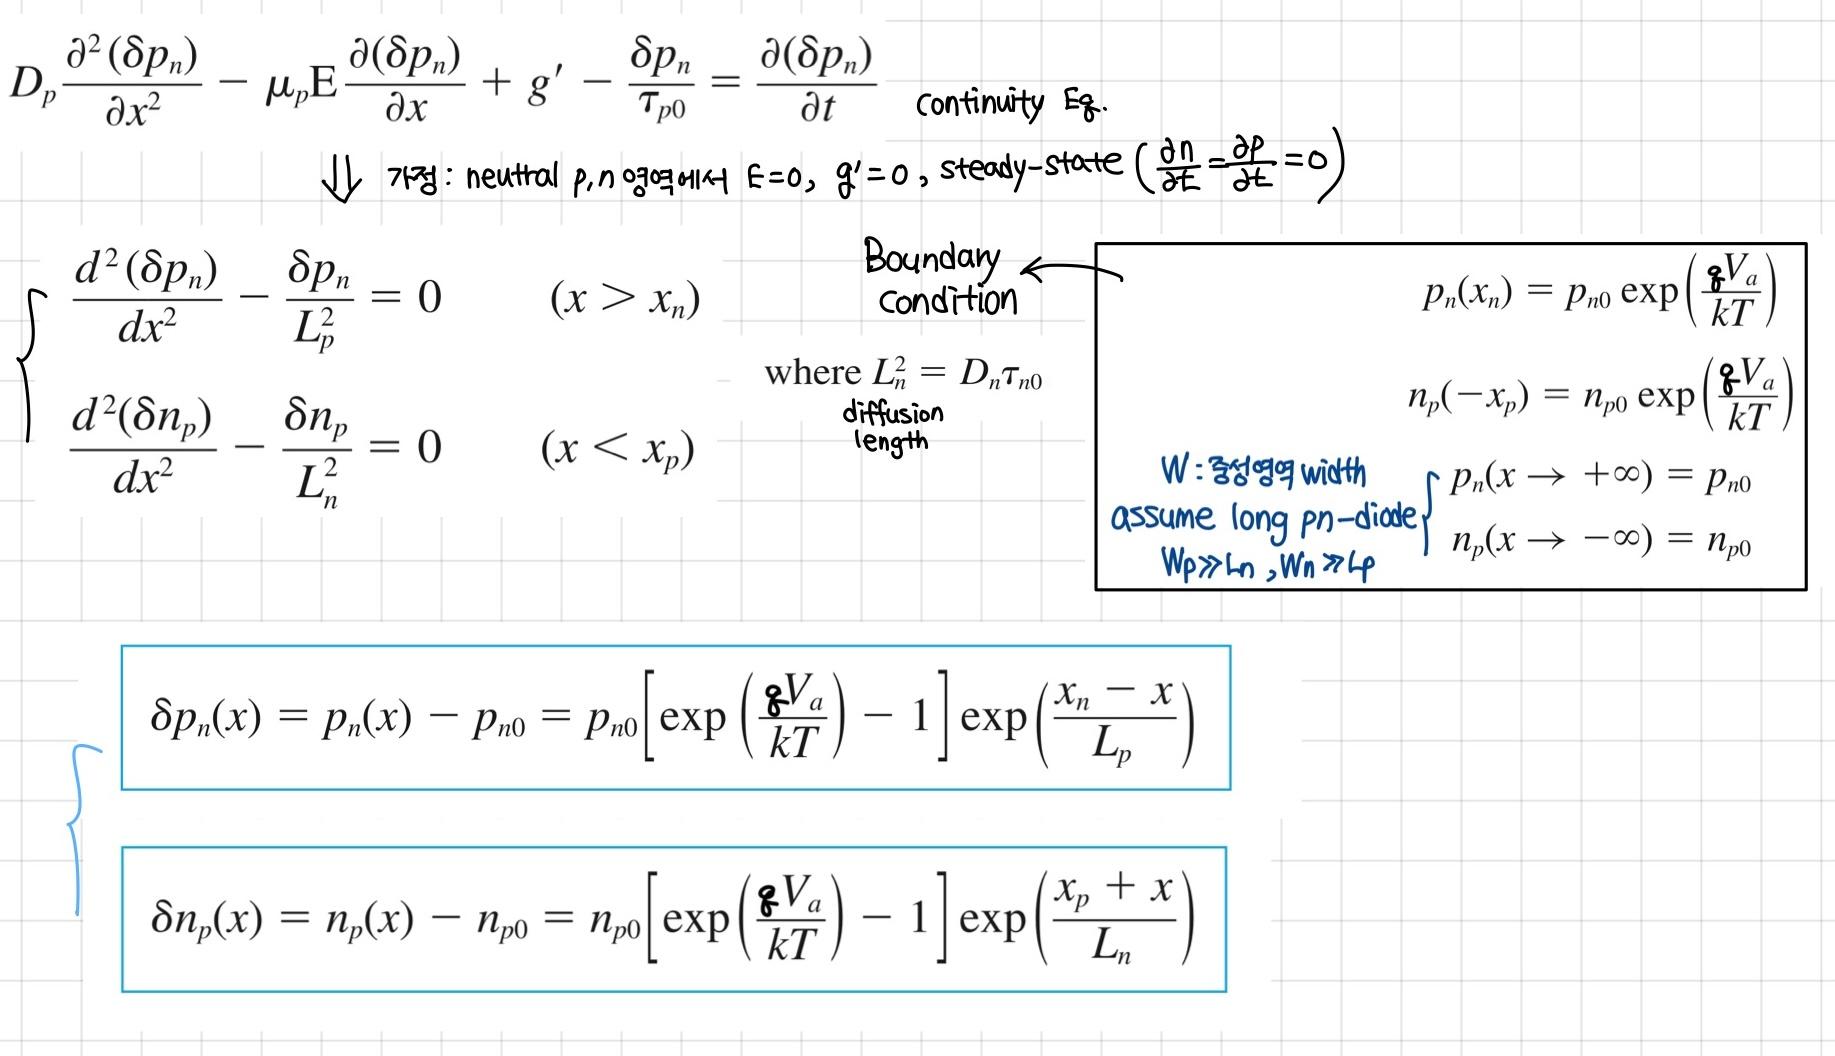 D_p ∂²(δp_n)/∂x² − μ_p E ∂(δp_n)/∂x + g′ − δp_n/τ_p0 = ∂(δp_n)/∂t
continuity Eq.
⇓ 가정: neutral p,n 영역에서 E=0, g′=0, steady-state (∂n/∂t = ∂p/∂t = 0)
d²(δp_n)/dx² − δp_n/L_p² = 0 (x > x_n)
d²(δn_p)/dx² − δn_p/L_n² = 0 (x < x_p)
Boundary
condition
where L_n² = D_n τ_n0
diffusion
length
p_n(x_n) = p_n0 exp(qV_a/kT)
n_p(−x_p) = n_p0 exp(qV_a/kT)
W : 중성영역 width
assume long pn-diode
Wp≫Ln , Wn≫Lp
p_n(x → +∞) = p_n0
n_p(x → −∞) = n_p0
δp_n(x) = p_n(x) − p_n0 = p_n0 [exp(qV_a/kT) − 1] exp((x_n − x)/L_p)
δn_p(x) = n_p(x) − n_p0 = n_p0 [exp(qV_a/kT) − 1] exp((x_p + x)/L_n)